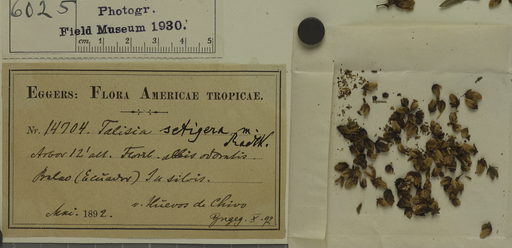 6025
Photogr.
Field Museum 1930.
cm. 1 2 3 4 5
EGGERS: FLORA AMERICAE TROPICAE.
Nr. 14704. Talisia setigera m. Radlk.
Arbor 12' alt. Floribus albis odoratis.
Balao (Ecuador) In silvis.
v. Huevos de Chivo
Mai. 1892.